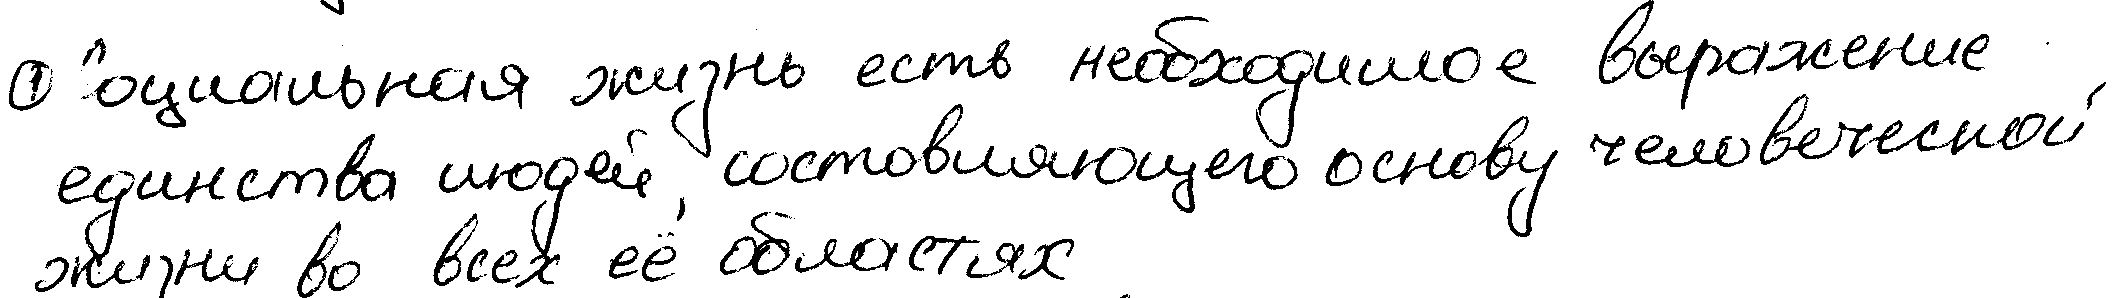 ① Социальная жизнь есть необходимое выражение
единства людей, состовляющего основу человеческой
жизни во всех её областях